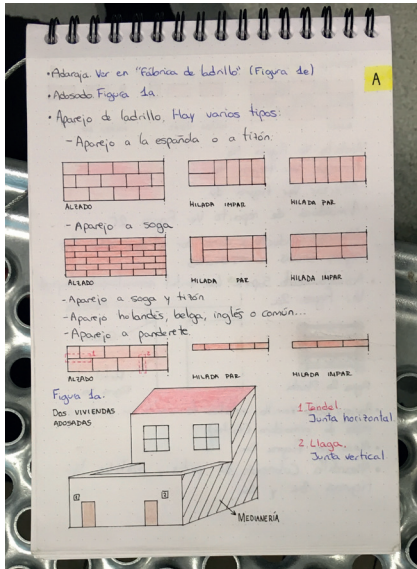 • Adaraja. Ver en "Fábrica de ladrillo" (Figura 1e)
A
• Adosado. Figura 1a.
• Aparejo de ladrillo. Hay varios tipos:
- Aparejo a la española o a tizón.
ALZADO
HILADA IMPAR
HILADA PAR
- Aparejo a soga
ALZADO
HILADA PAR
HILADA IMPAR
- Aparejo a soga y tizón
- Aparejo holandés, belga, inglés o común...
- Aparejo a panderete.
ALZADO
HILADA PAR
HILADA IMPAR
Figura 1a.
DOS VIVIENDAS
ADOSADAS
1. Tendel.
Junta horizontal
2. Llaga.
Junta vertical
MEDIANERÍA